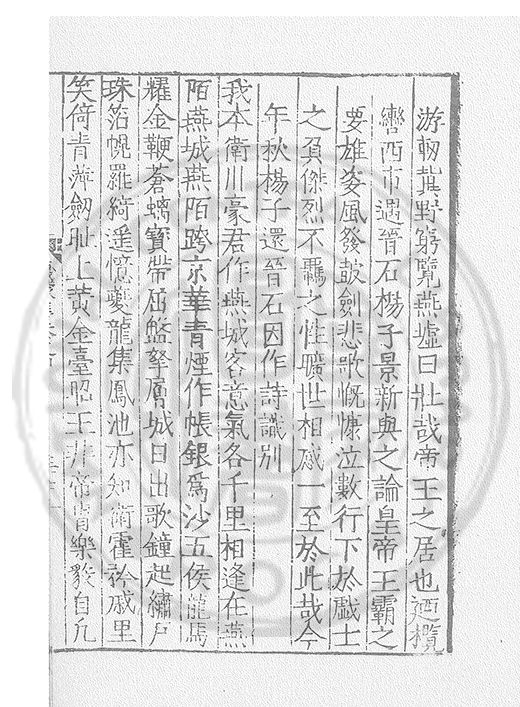 游軔冀野窮覽燕墟曰壯哉帝王之居也廼攬
轡西市遇晉石楊子景新與之論皇帝王霸之
要雄姿風發鼓劍悲歌慨慷泣數行下於戲士
之負傑烈不羈之性曠世相感一至於此哉今
年秋楊子還晉石因作詩識別
我本衛川豪君作燕城客意氣各千里相逢在燕
陌燕城燕陌跨京華青煙作帳銀為沙五侯龍馬
耀金鞭蒼螭寶帶屈盤拏層城日出歌鐘起繡戶
珠箔幌羅綺遥憶夔龍集鳳池亦知衛霍矜戚里
笑倚青萍劒耻上黃金臺昭王非帝胄樂毅自凡